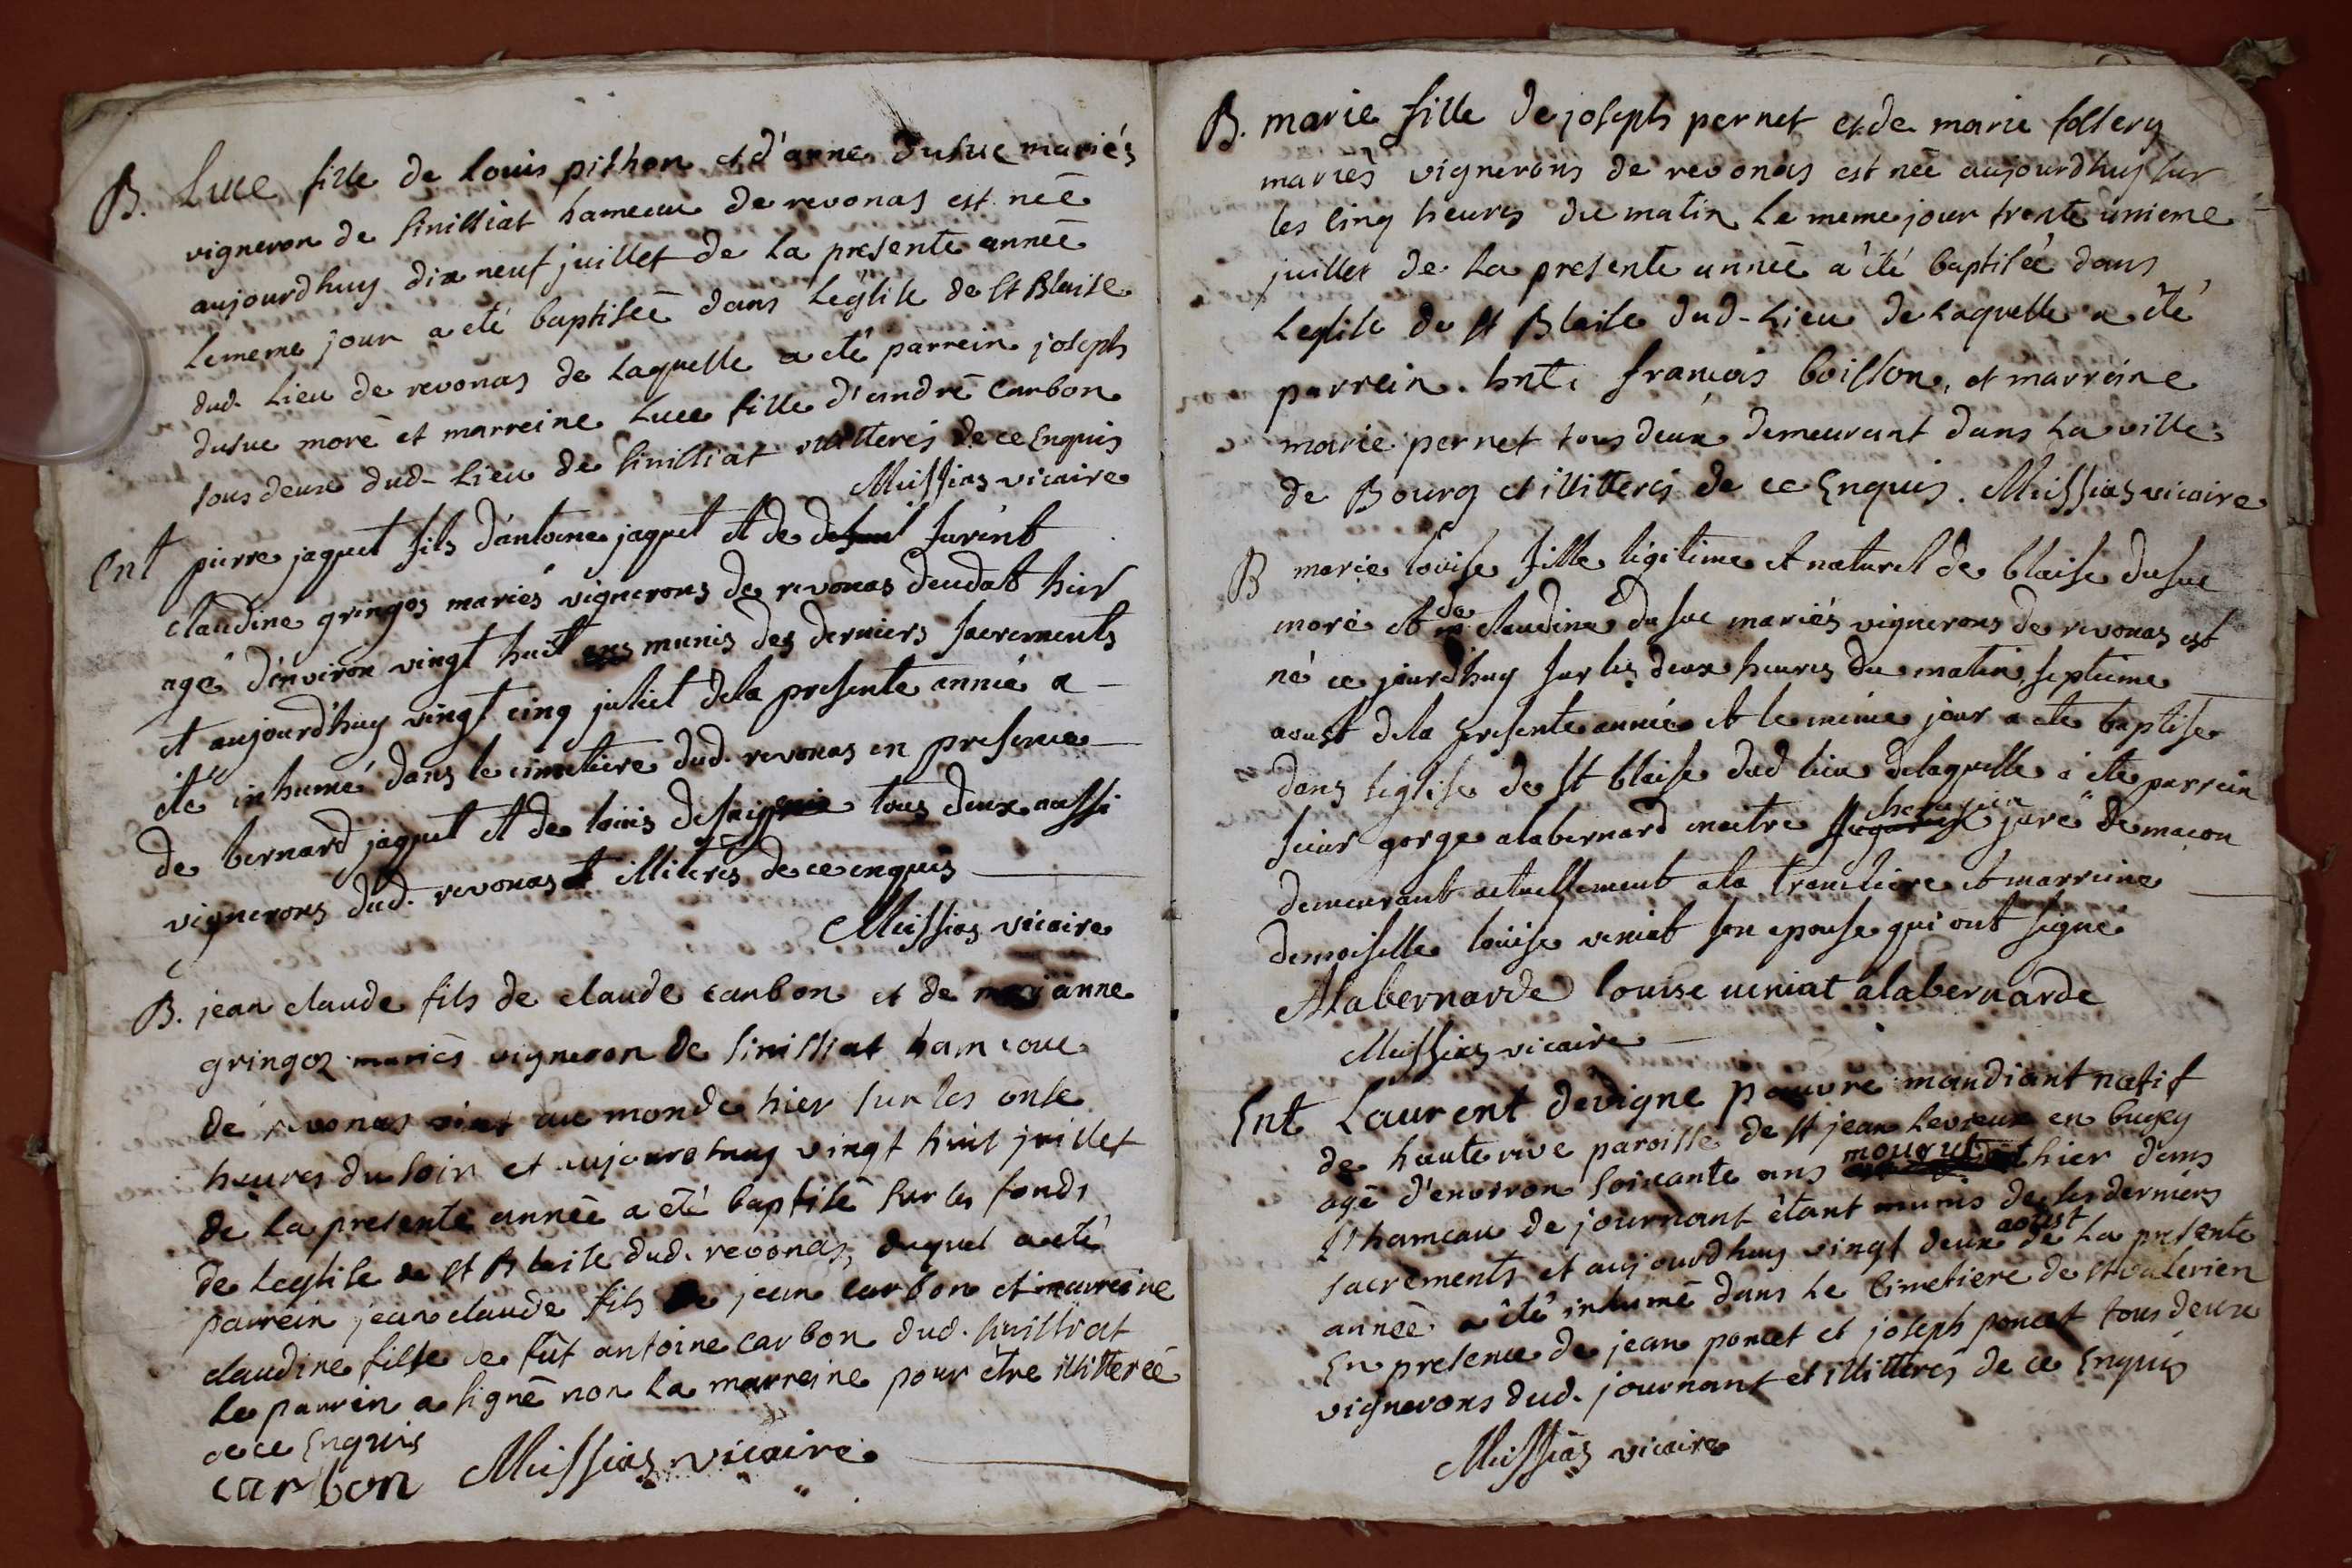 B. Luce fille de Louis pithon et d'anne dusuc mariés
vigneron de sinissiat hameau de revonas est neé
aujourdhuy dix neuf juillet de la presente anneé
lememe jour a eté baptiseé dans l'eglise de st Blaise
dud. lieu de revonas de laquelle a eté parrein joseph
dusuc moré et marreine luce fille d'andré carbon
tous deux dud. lieu de sinissiat illitterés de ce Enquis
Meissias vicaire
Ent pierre jaquet fils d'antoine jaquet et de
claudine gringoz mariés vignerons de revonas deudat hier
agé d'environ vingt huit ans munis des derniers sacrements
et aujourd'huy vingt cinq juliet dela presente année a
eté inhumé dans le cimetiere dud. revonas en presence
de bernard jaquet et de louis tous deux aussi
vignerons dud. revonas et illiterés de ce enquis
Meissias vicaire
B. jean claude fils de claude carbon et de marianne
gringoz mariés vigneron de sinissiat hameaue
de revonas vint au monde hier sur les onse
heures du soir et aujourdhuy vingt huit juillet
de la presente anneé a eté baptisé sur les fonds
de leglise de st Blaise dud. revonas, duquel a eté
parrein jean claude fils de jean carbon et marreine
claudine fille de fût antoine carbon dud. sinissiat
le parrein a signé non la marreine pour être illitereé
de ce Enquis
carbon Meissias vicaire
B. marie fille de joseph pernet et de marie
mariés vignerons de revonas est neé aujourdhuy sur
les cinq heures du matin le meme jour trente unieme
juillet de la presente anneé a été baptiseé dans
leglise de st Blaise dud. lieu de laquelle a été
parrein. françois boisson, et marreine
marie pernet tous deux demeurant dans la ville
de Bourg et illitterés de ce Enquis. Meissias vicaire
B marie louise fille legitime et naturel de blaise dusuc
moré et de claudine dusuc mariés vignerons de revonas est
né ce jourd'huy sur les deux heures du matin septieme
aoust dela presente année et le même jour a eté baptisé
dans leglise de st blaise dud lieu delaquelle a eté parrein
sieur gorge alabernard maitre juré de macon
demeurant actuellement ala trancliere et marreine
demoiselle louise veniat son epouse qui ont signé
Alabernarde louise ueniat alabernarde
Meissias vicaire
Ent Laurent devigne pauvre mandiant natif
de hauterive paroisse de st jean levieux en bugey
agé d'environ soixante ans mourut hier dans
l'hameau de journant étant munis de ses derniers
sacrements et aujourdhuy vingt deux aoust de la presente
anneé a été inhumé dans le cimetiere de st valerien
En presence de jean poncet et joseph poncet tous deux
vignerons dud. journant et illitterés de ce Enquis
Meissias vicaire